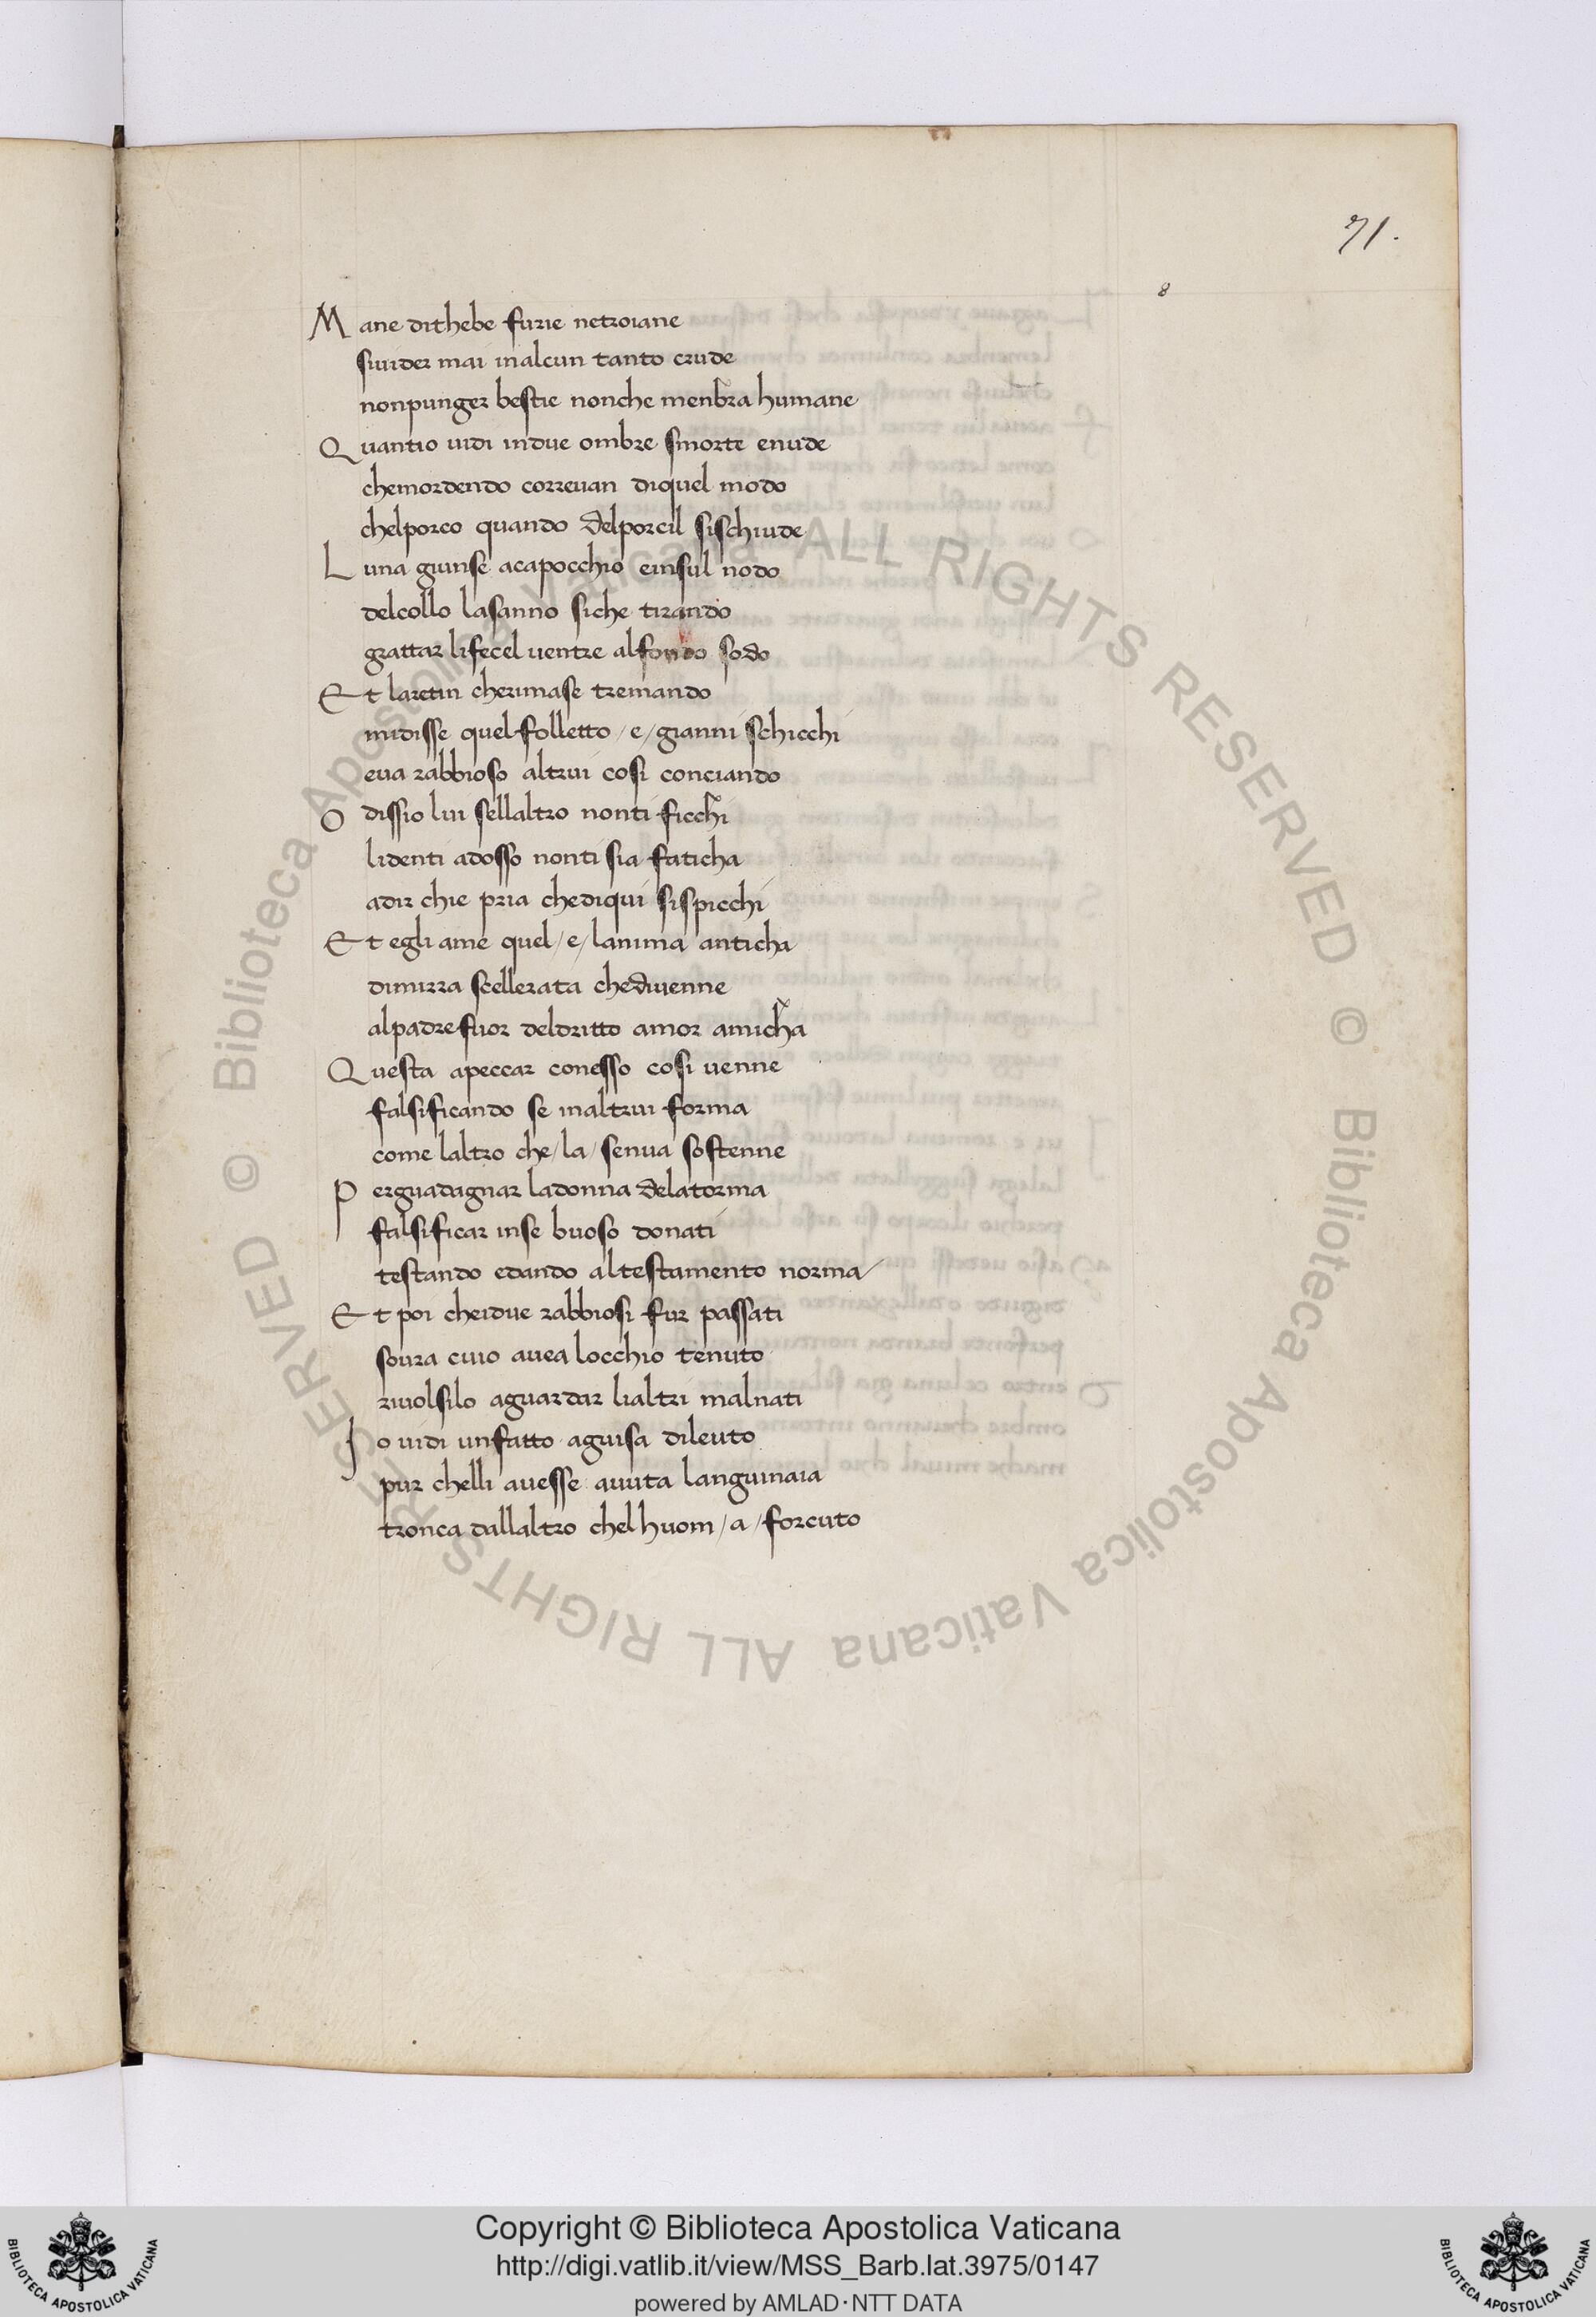 71.
8
M ane dithebe furie netroiane
siuider mai inalcun tanto crude
nonpunger bestie nonche menbra humane
Q uantio uidi indue ombre smorte enude
chemordendo correuan diquel modo
chelporco quando delporcil sischiude
L una giunse acapocchio einsul nodo
delcollo lasanno siche tirando
grattar lifecel uentre alfondo sodo
E t laretin cherimase tremando
midisse quel folletto /e/ gianni schicchi
eua rabbioso altrui cosi conciando
O dissio lui sellaltro nonti ficchi
lidenti adosso nonti sia faticha
adir chie pria chediqui sispicchi
E t egli ame quel /e/ lanima anticha
dimirra scellerata chediuenne
alpadre fuor deldritto amor amicha
Q uesta apeccar conesso cosi uenne
falsificando se inaltrui forma
come laltro che /la/ senua sostenne
P erguadagnar ladonna delatorma
falsificar inse buoso donati
testando edando altestamento norma
E t poi cheidue rabbiosi fur passati
soura cuio auea locchio tenuto
riuolsilo aguardar lialtri malnati
I o uidi unfatto aguisa dileuto
pur chelli auesse auuta languinaia
tronca dallaltro chelhuom /a/ forcuto
© Biblioteca Apostolica Vaticana ALL RIGHTS RESERVED © Biblioteca Apostolica Vaticana ALL RIGHTS RESERVED
BIBLIOTECA APOSTOLICA VATICANA
Copyright © Biblioteca Apostolica Vaticana
http://digi.vatlib.it/view/MSS_Barb.lat.3975/0147
powered by AMLAD·NTT DATA
BIBLIOTECA APOSTOLICA VATICANA